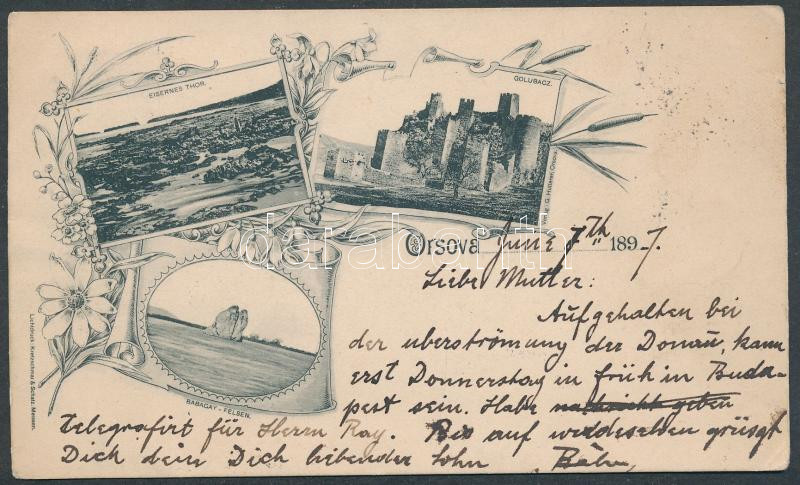 EISERNES THOR.
GOLUBACZ.
BABAGAY - FELSEN.
Lichtdruck: Kretzschmar & Schatz, Meissen.
Orsova June 7th 1897.
Liebe Mutter:
Aufgehalten bei
der uberströmung der Donau, kann
erst Donnerstag in früh in Buda-
pest sein. Habe nachricht geben
telegrafirt für Herrn Ray. Bis auf widdeselden grüsgt
Dich dein Dich liebender Sohn
darabanth.com